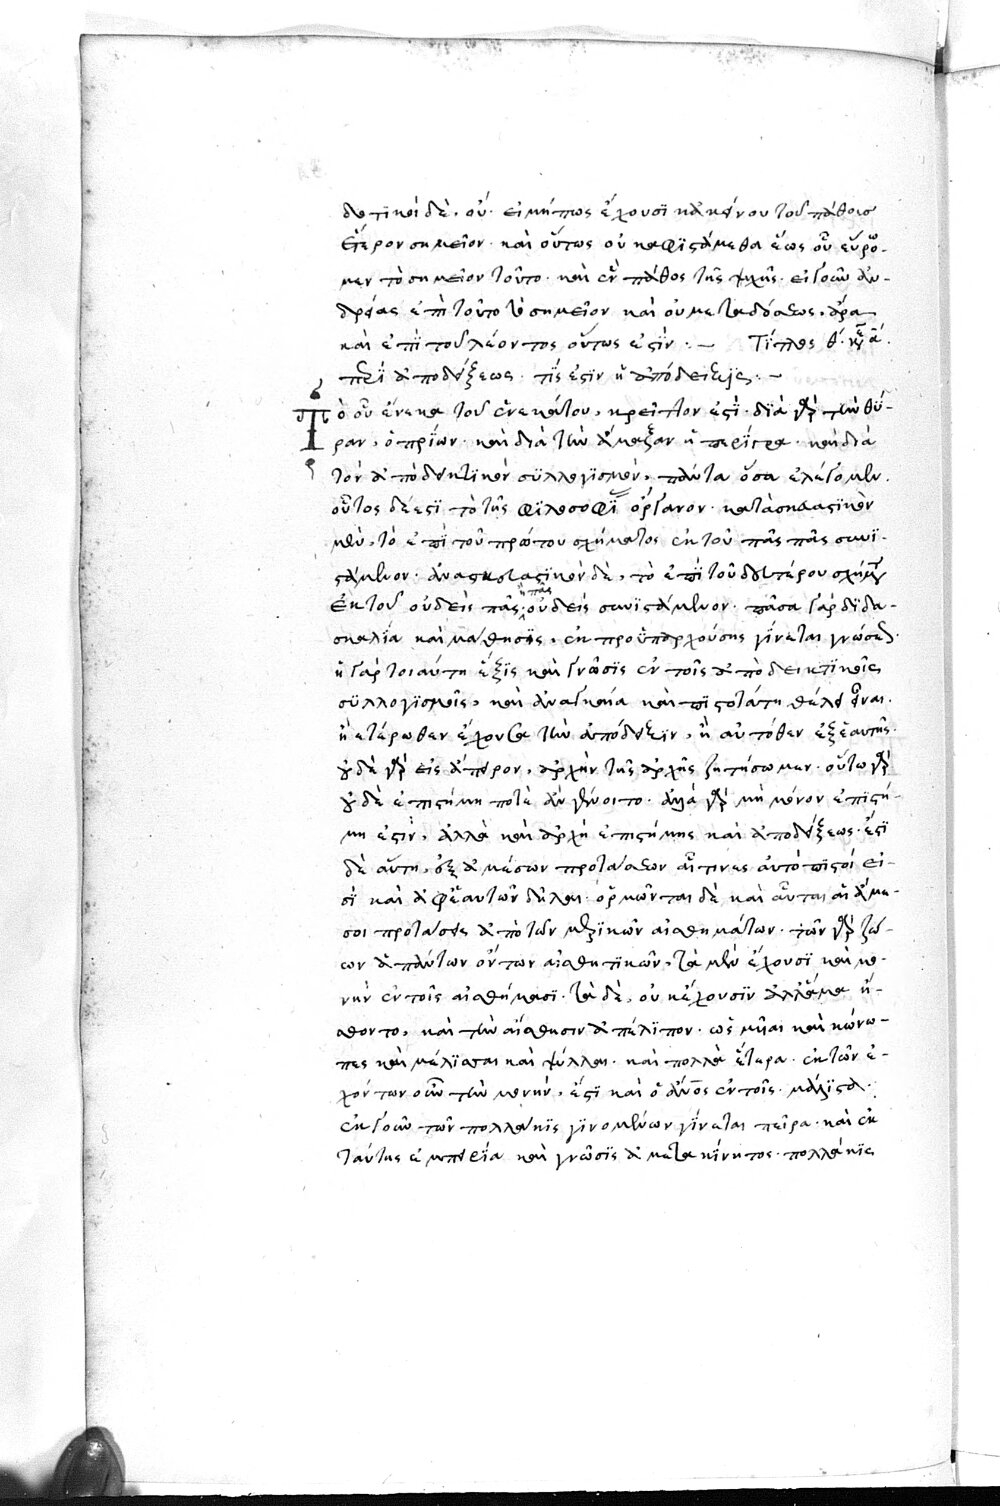 δοτικοὶ δὲ, οὔ. εἰ μήπως ἔχουσι κἀκείνου τοῦ πάθους
ἕτερον σημεῖον. καὶ οὕτως οὐκ ἀφιστάμεθα ἕως οὗ εὕρω-
μεν τὸ σημεῖον τοῦτο. καὶ ἓν πάθος τῆς ψυχῆς. εἰ γοῦν ἀν-
δρείας ἐπὶ τοῦτο τὸ σημεῖον καὶ οὐ μεταδόσεως, ἄρα
καὶ ἐπὶ τοῦ λέοντος οὕτως ἐστὶν. Τίτλος θ΄. κεφ. α΄.
περὶ ἀποδείξεως. τίς ἐστὶν ἡ ἀπόδειξις.
Τὸ οὗ ἕνεκα τοῦ ἕνεκά του, κρεῖττον ἐστὶ. διὰ γὰρ τὴν θύ-
ραν, ὁ πρίων. καὶ διὰ τὴν ἅμαξαν ἡ περίστρα. καὶ διὰ
τὸν ἀποδεικτικὸν συλλογισμὸν, πάντα ὅσα ἐλέγομεν.
οὗτος δέ ἐστι τὸ τῆς φιλοσοφίας ὄργανον. κατασκευαστικὸν
μὲν, τὸ ἐπὶ τοῦ πρώτου σχήματος ἐκ τοῦ πᾶς πᾶς συνι-
στάμενον. ἀνασκευαστικὸν δὲ, τὸ ἐπὶ τοῦ δευτέρου σχήματος
ἐκ τοῦ οὐδεὶς πᾶς ἢ πᾶς οὐδεὶς συνιστάμενον. πᾶσα γὰρ διδα-
σκαλία καὶ μάθησις, ἐκ προϋπαρχούσης γίνεται γνώσεως.
ἡ γὰρ τοιαύτη ἕξις καὶ γνῶσις ἐν τοῖς ἀποδεικτικοῖς
συλλογισμοῖς, καὶ ἀναγκαία καὶ πιστοτάτη θέλει εἶναι.
ἢ ἑτέρωθεν ἔχουσα τὴν ἀπόδειξιν, ἢ αὐτόθεν ἐξ ἑαυτῆς.
οὐδὲ γὰρ εἰς ἄπειρον, ἀρχὴν τῆς ἀρχῆς ζητήσωμεν. οὕτω γὰρ
οὐδὲ ἐπιστήμη ποτὲ ἂν γένοιτο. ἀλλὰ γὰρ μὴ μόνον ἐπιστή-
μη ἐστὶν, ἀλλὰ καὶ ἀρχὴ ἐπιστήμης καὶ ἀποδείξεως. ἔστι
δὲ αὕτη, ἐξ ἀμέσων προτάσεων αἵτινες αὐτόπιστοί εἰ-
σι καὶ ἀφ' ἑαυτῶν δῆλαι. ὁρμῶνται δὲ καὶ αὗται αἱ ἄμε-
σοι προτάσεις ἀπὸ τῶν μερικῶν αἰσθημάτων. τῶν γὰρ ζώ-
ων ἁπάντων ὄντων αἰσθητικῶν, τὰ μὲν ἔχουσι καὶ μο-
νὴν ἐν τοῖς αἰσθήμασι. τὰ δὲ, οὐκ ἔχουσιν ἀλλ' ἅμα ᾔ-
σθοντο, καὶ τὴν αἴσθησιν ἀπέλιπον. ὡς μῆαι καὶ κώνω-
πες καὶ μέλισσαι καὶ ψύλλαι. καὶ πολλὰ ἕτερα. ἐκ τῶν ἐ-
χόντων οὖν τὴν μονὴν, ἔστι καὶ ὁ ἄνθρωπος ἐν τοῖς μάλιστα.
ἐκ γοῦν τῶν πολλάκις γινομένων γίνεται πεῖρα. καὶ ἐκ
ταύτης ἐμπειρία καὶ γνῶσις ἀμετακίνητος. πολλάκις